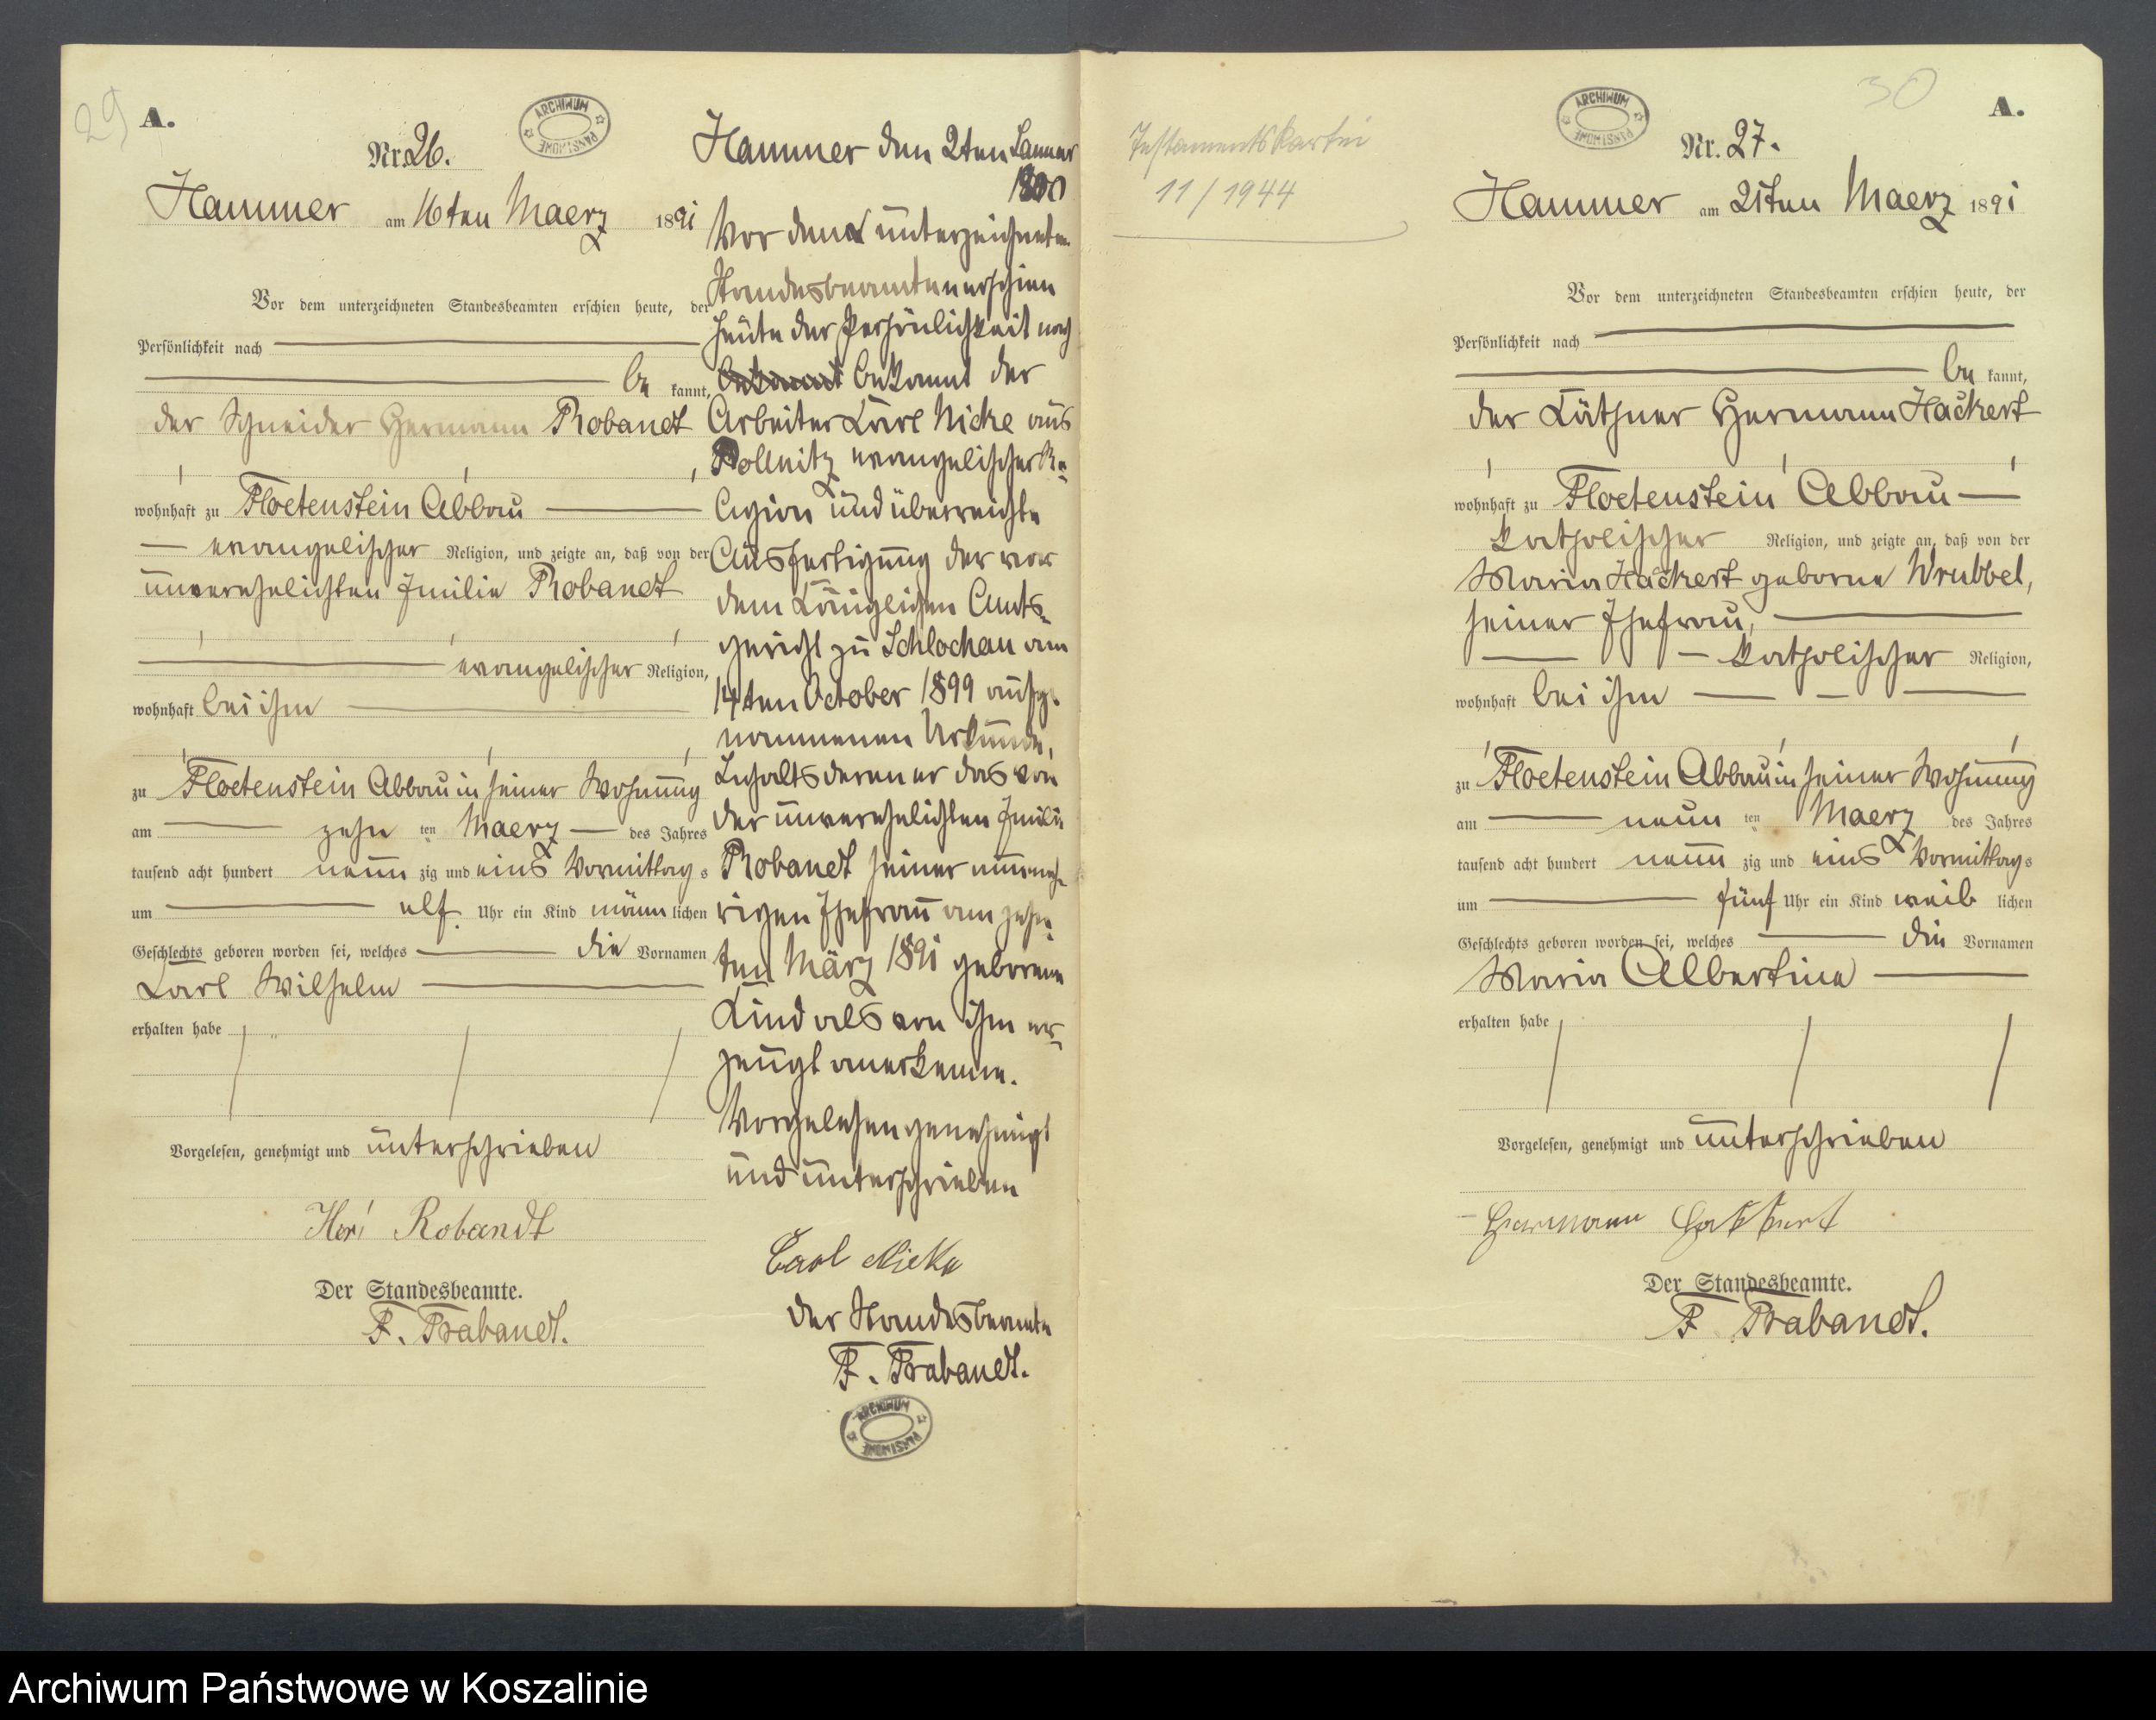 29
A.
ARCHIWUM PAŃSTWOWE
Nr. 26.
Hammer am 16ten Maerz 1891
Vor dem unterzeichneten Standesbeamten erschien heute, der
Persönlichkeit nach
be kannt,
der Schneider Hermann Robandt
wohnhaft zu Floetenstein Abbau
evangelischer Religion, und zeigte an, daß von der
unverehelichten Emilie Robandt
evangelischer Religion,
wohnhaft bei ihm
zu Floetenstein Abbau in seiner Wohnung
am zehn ten Maerz des Jahres
tausend acht hundert neun zig und eins Vormittag s
um elf Uhr ein Kind männ lichen
Geschlechts geboren worden sei, welches die Vornamen
Karl Wilhelm
erhalten habe
Vorgelesen, genehmigt und unterschrieben
Her. Robandt
Der Standesbeamte.
F. Trabandt.
Hammer den 2ten Januar
1900
Vor dem unterzeichneten
Standesbeamten erschien
heute der Persönlichkeit nach
bekannt bekannt der
Arbeiter Karl Nicke aus
Pollnitz evangelischer Re-
ligion und überreichte
Ausfertigung der vor
dem Königlichen Amts-
gericht zu Schlochau am
14ten October 1899 aufge-
nommenen Urkunde,
Inhalts deren er das von
der unverehelichten Emilie
Robandt seiner nunmeh-
rigen Ehefrau am zehn-
ten März 1891 geborene
Kind als von ihm er-
zeugt anerkenne.
Vorgelesen genehmigt
und unterschrieben
Carl Nicke
Der Standesbeamte
F. Trabandt.
ARCHIWUM PAŃSTWOWE
Testamentskartei
11/1944
30
A.
ARCHIWUM PAŃSTWOWE
Nr. 27.
Hammer am 21ten Maerz 1891
Vor dem unterzeichneten Standesbeamten erschien heute, der
Persönlichkeit nach
be kannt,
der Käthner Hermann Hackert
wohnhaft zu Floetenstein Abbau
katholischer Religion, und zeigte an, daß von der
Maria Hackert geborne Wrubbel,
seiner Ehefrau,
katholischer Religion,
wohnhaft bei ihm
zu Floetenstein Abbau in seiner Wohnung
am neun ten Maerz des Jahres
tausend acht hundert neun zig und eins Vormittag s
um fünf Uhr ein Kind weib lichen
Geschlechts geboren worden sei, welches die Vornamen
Maria Albertine
erhalten habe
Vorgelesen, genehmigt und unterschrieben
Hermann Hakkert
Der Standesbeamte.
F Trabandt.
Archiwum Państwowe w Koszalinie